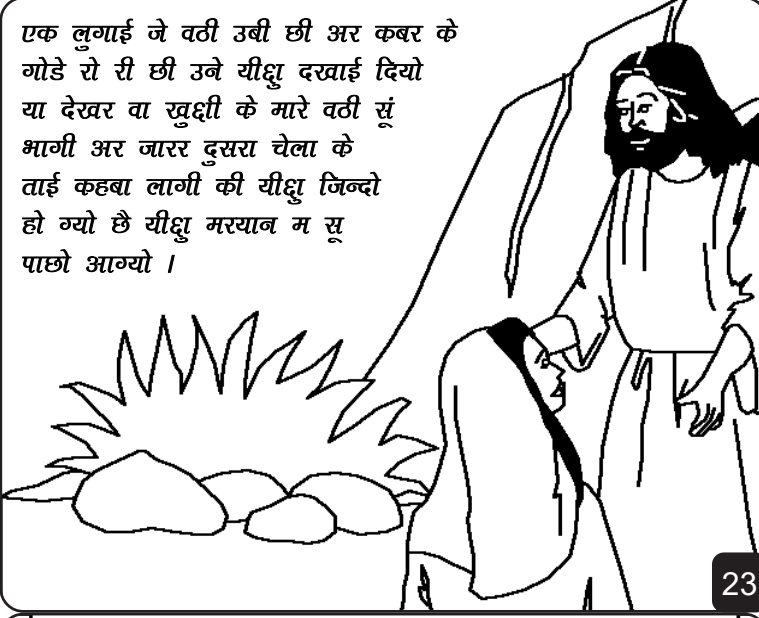 एक लुगाई जे वठी उबी छी अर कबर के
गोडे रो री छी उने यीक्षु दखाई दियो
या देखर वा खुक्षी के मारे वठी सूं
भागी अर जारर दुसरा चेला के
ताई कहबा लागी की यीक्षु जिन्दो
हो ग्यो छै यीक्षु मरयान म सू
पाछो आग्यो ।
23